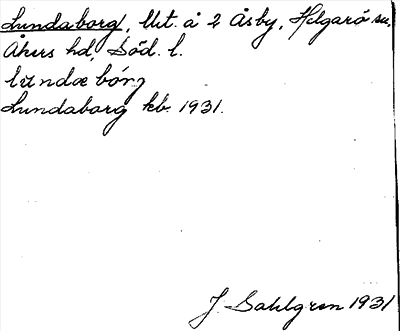 Lundaborg, Utt. å 2 Åsby, Helgarö sn,
Åkers hd, Söd. l.
Lundaborg kb. 1931.
J. Sahlgren 1931